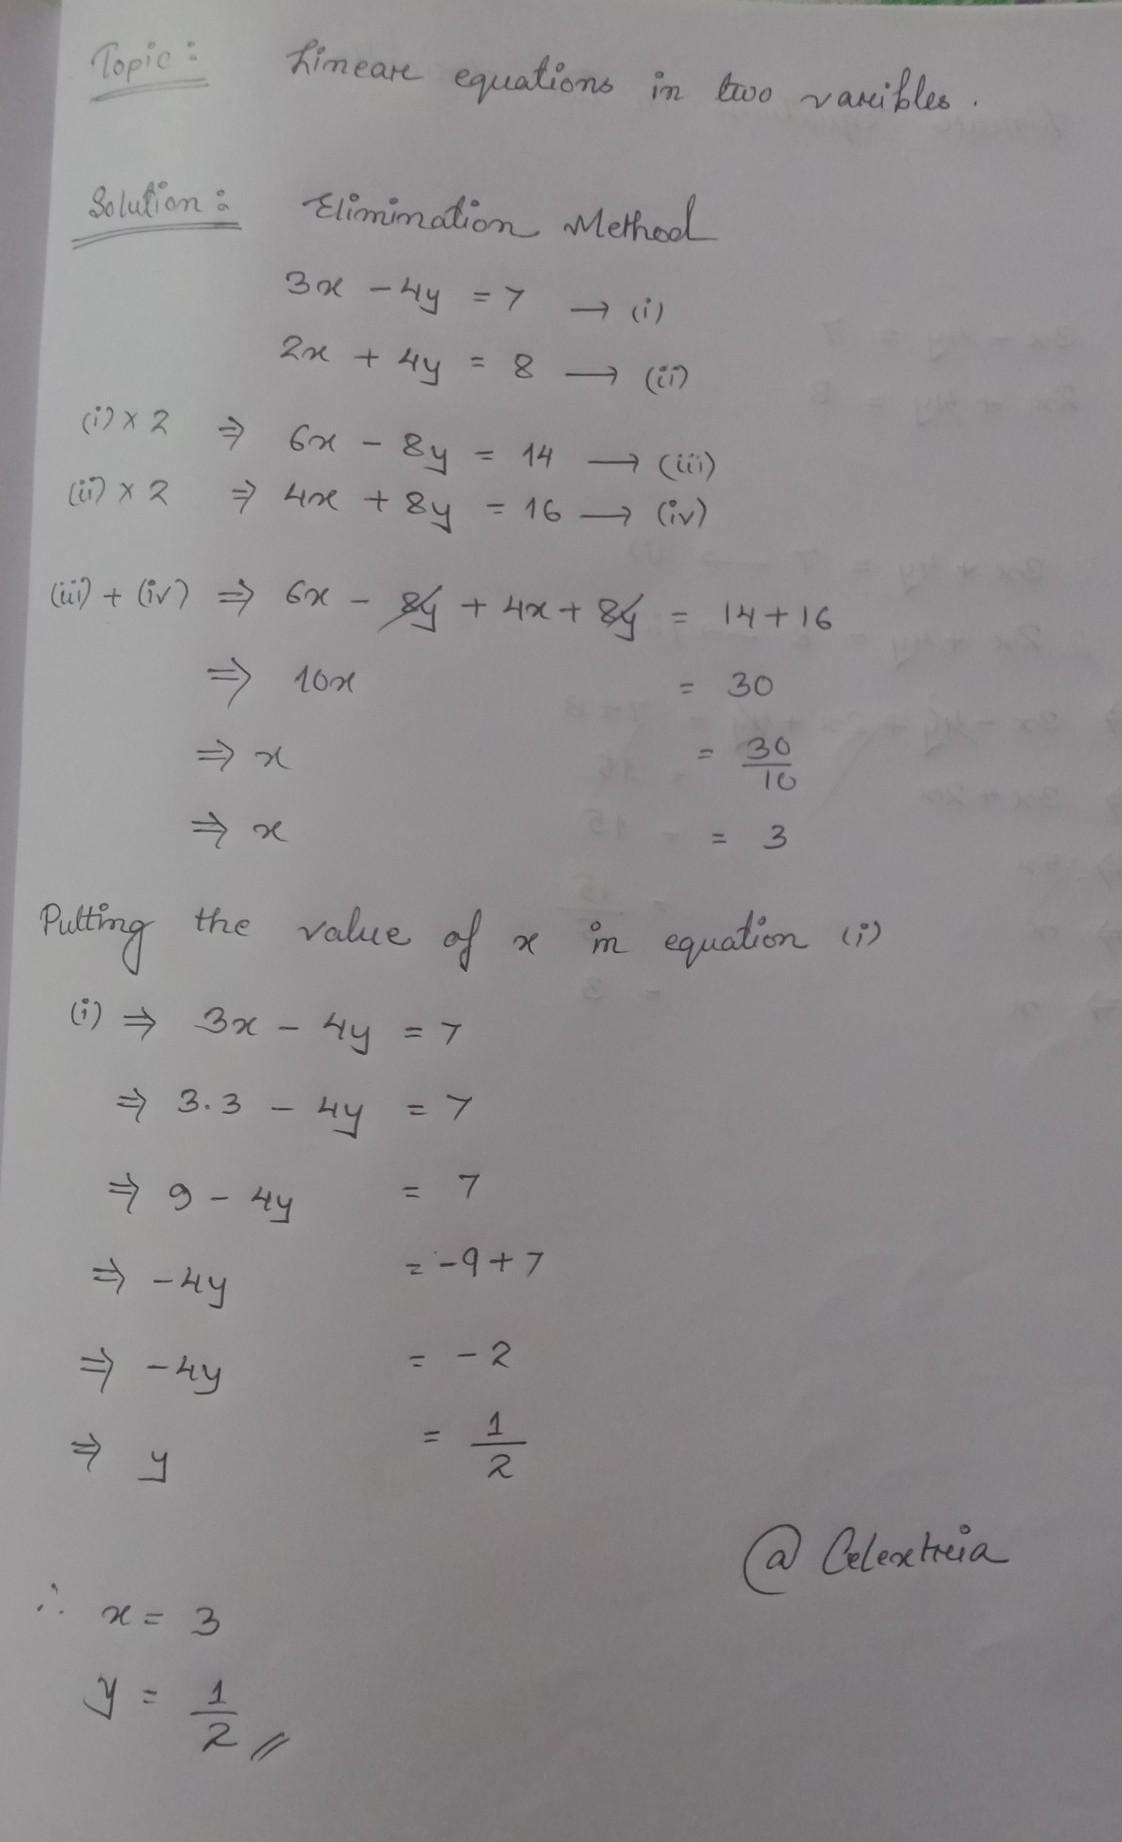 Topic: Linear equations in two varibles.
Solution: Elimination Method
3x - 4y = 7 → (i)
2x + 4y = 8 → (ii)
(i) × 2 ⇒ 6x - 8y = 14 → (iii)
(ii) × 2 ⇒ 4x + 8y = 16 → (iv)
(iii) + (iv) ⇒ 6x - 8y + 4x + 8y = 14 + 16
⇒ 10x = 30
⇒ x = 30/10
⇒ x = 3
Putting the value of x in equation (i)
(i) ⇒ 3x - 4y = 7
⇒ 3.3 - 4y = 7
⇒ 9 - 4y = 7
⇒ -4y = -9 + 7
⇒ -4y = -2
⇒ y = 1/2
@Celextria
∴ x = 3
y = 1/2 //